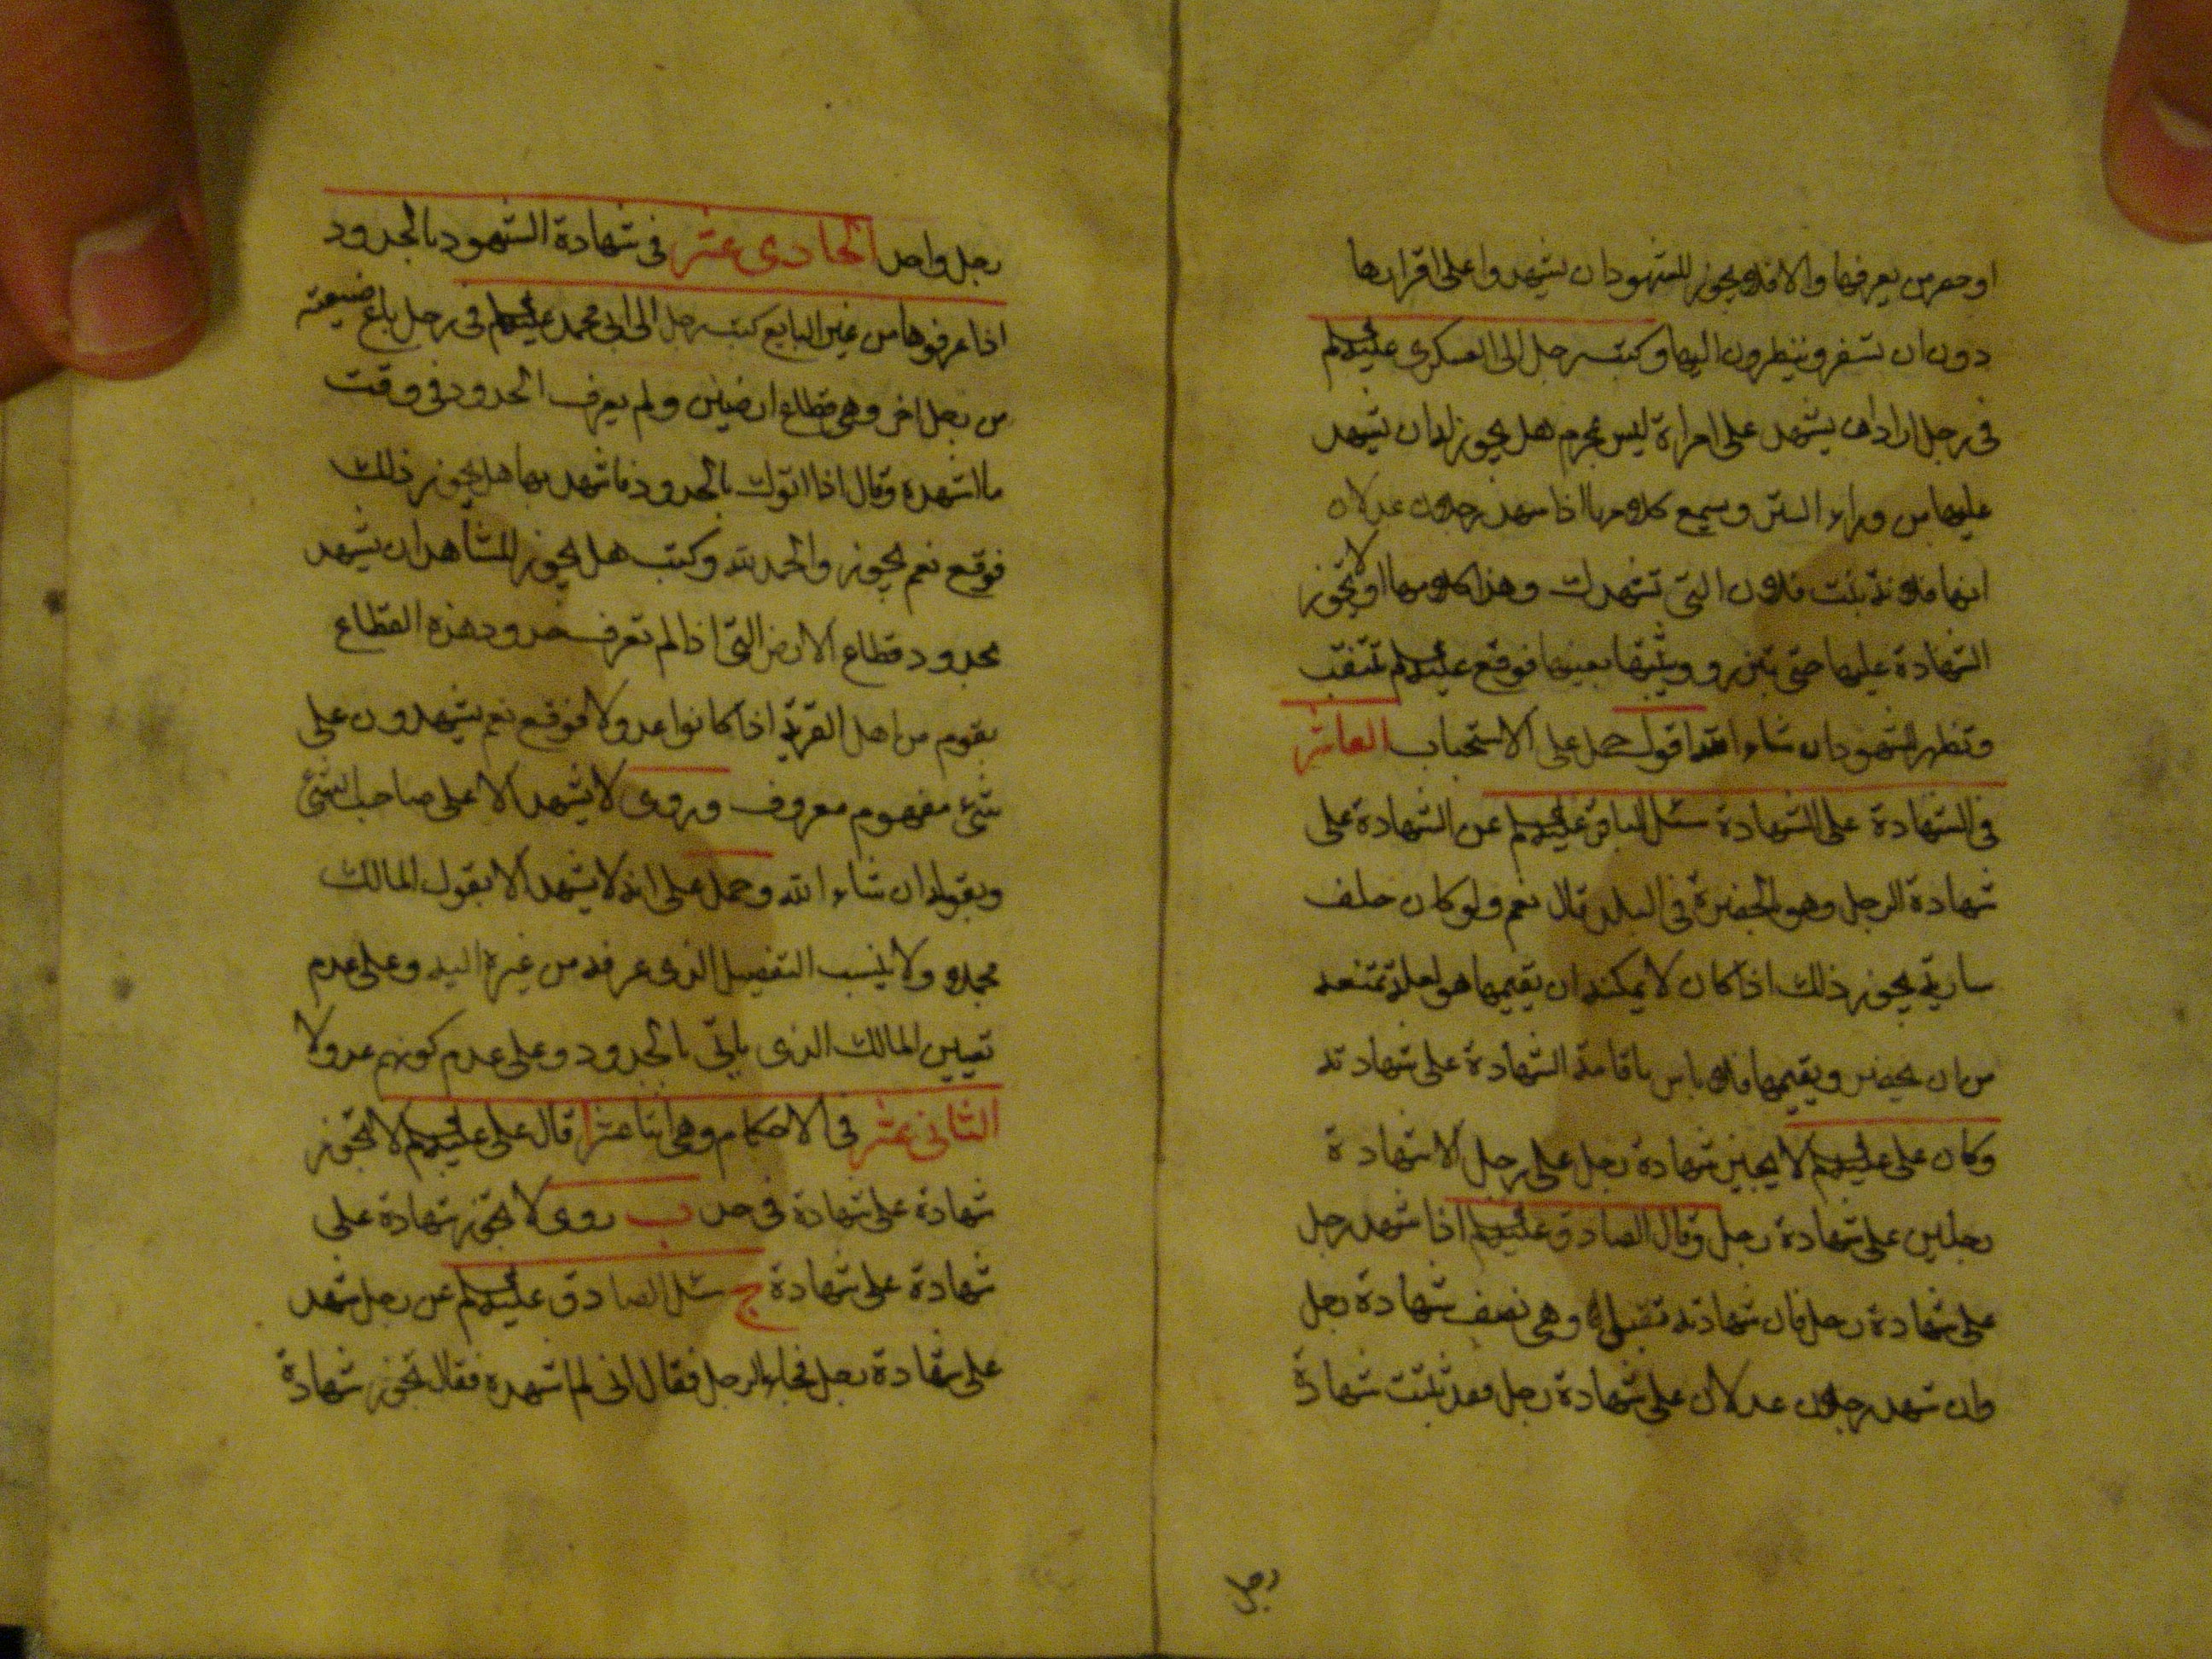 او حضر من يعرفها والا فلا يجوز للشهود ان يشهدوا على اقرارها
دون ان تسفر وينظرون اليها وكتب رجل الى العسكرى عليه‌السلم
فى رجل اراد ان يشهد على امراة ليس بمحرم هل يجوز له ان يشهد
عليها من وراء الستر وسمع كلامها اذا شهد رجلان عدلان
انها فلانة بنت فلان التى تشهدك وهذا كلامها او لا تجوز
الشهادة عليها حتى تبرز ويثبتها بعينها فوقع عليه‌السلم تتنقب
وتظهر للشهود ان شاء الله اقول حمل على الاستحباب العاشر
فى الشهادة على الشهادة سئل الباقر عليه‌السلم عن الشهادة على
شهادة الرجل وهو بالحضرة فى البلد قال نعم ولو كان خلف
سارية يجوز ذلك اذا كان لا يمكنه ان يقيمها هو لعلة تمنعه
من ان يحضر ويقيمها فلا باس باقامة الشهادة على شهادته
وكان على عليه‌السلم لا يجيز شهادة رجل على رجل الا شهادة
رجلين على شهادة رجل وقال الصادق عليه‌السلم اذا شهد رجل
على شهادة رجل فان شهادته تقبل وهى نصف شهادة رجل
وان شهد رجلان عدلان على شهادة رجل فقد ثبتت شهادة
رجل
رجل واحد الحادى عشر فى شهادة الشهود بالحدود
اذا عرفوها من غير البايع كتب رجل الى ابى محمد عليه‌السلم فى رجل باع ضيعته
من رجل اخر وهى قطاع ارضين ولم يعرف الحدود فى وقت
ما اشهده وقال اذا اتوك بالحدود فاشهد بها هل يجوز ذلك
فوقع نعم يجوز والحمد لله وكتب هل يجوز للشاهد ان يشهد
بحدود قطاع الارض التى اذا لم تعرف حدود هذه القطاع
بقوم من اهل القرية اذا كانوا عدولا فوقع نعم يشهدون على
شئ مفهوم معروف وروى لا يشهد الا على صاحب الشئ
وبقوله ان شاء الله وحمل على انه لا يشهد الا بقول المالك
مجملا ولا ينسب التفصيل الذى عرفه من غيره اليه وعلى عدم
تعيين المالك الذى ياتى بالحدود وعلى عدم كونهم عدولا
الثانى عشر فى الاحكام وهى اثنا عشر ا قال على عليه‌السلم لا تجوز
شهادة على شهادة فى حد ب روى لا تجوز شهادة على
شهادة على شهادة ج سئل الصادق عليه‌السلم عن رجل شهد
على شهادة رجل فجاء الرجل فقال انى لم اشهده فقال تجوز شهادة